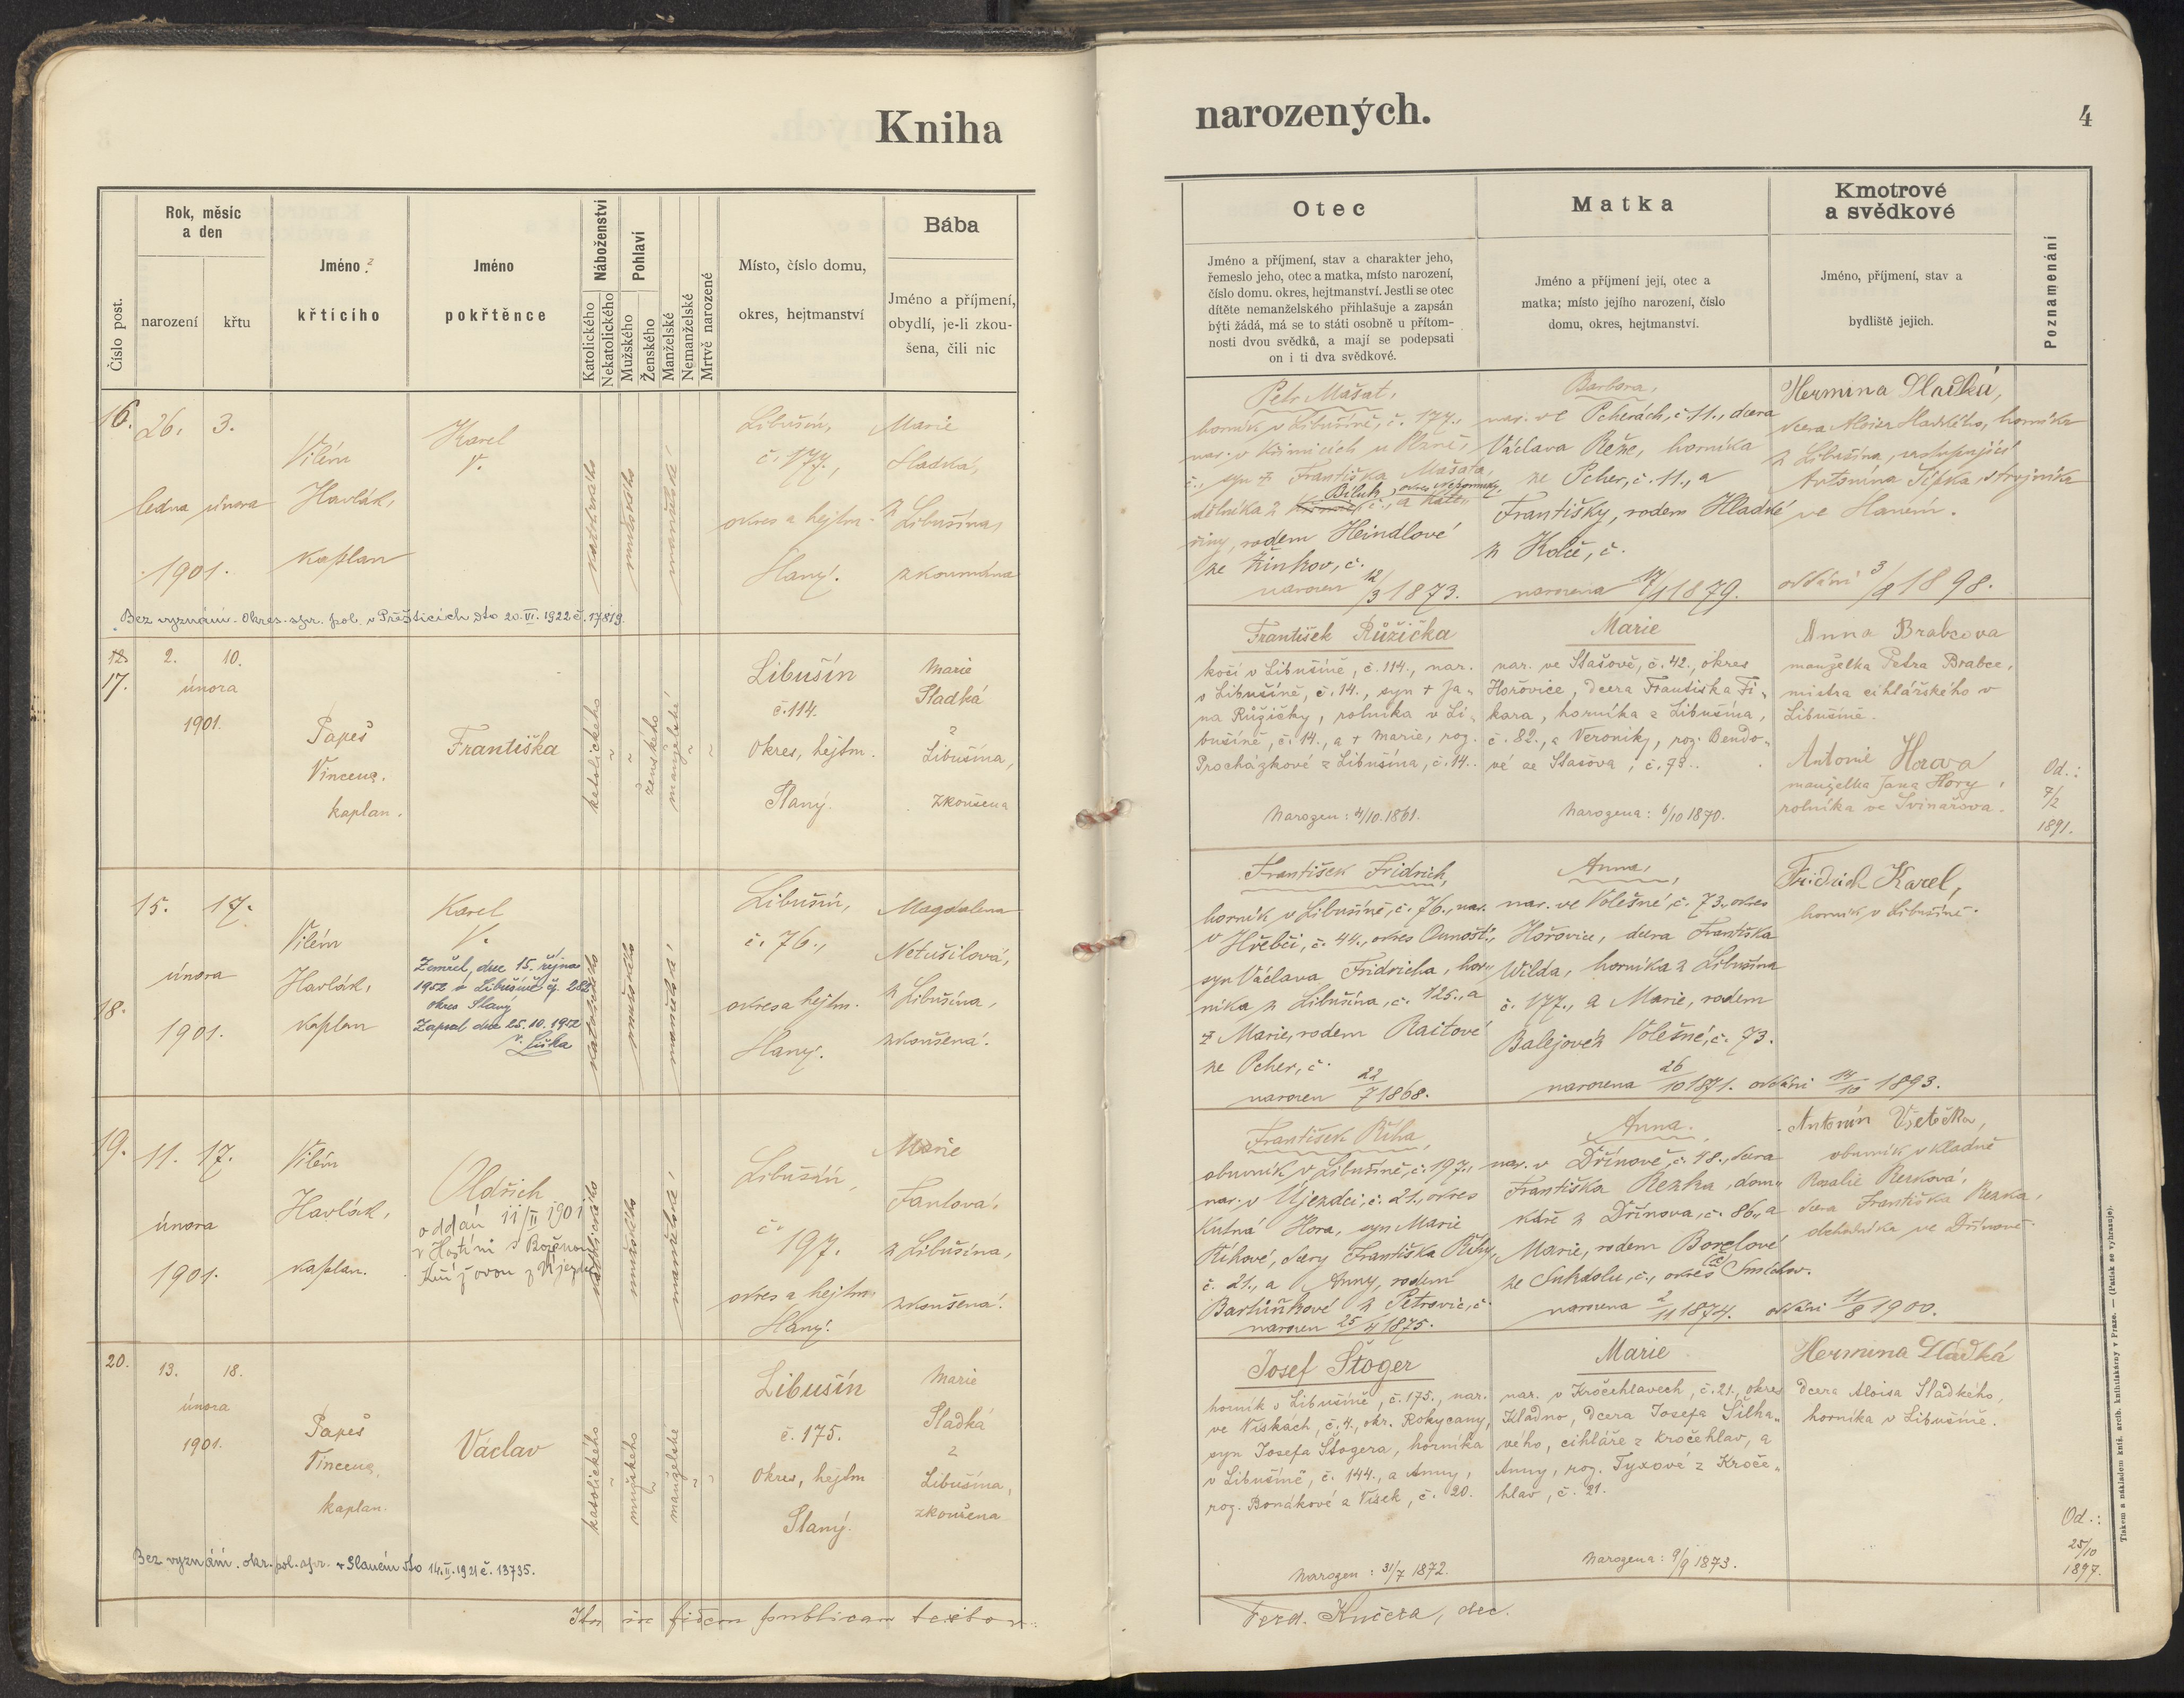 Kniha
narozených.
4
Číslo post.
Rok, měsíc
a den
narození
křtu
Jméno
křticího
Jméno
pokřtěnce
Náboženství
Katolického
Nekatolického
Pohlaví
Mužského
Ženského
Manželské
Nemanželské
Mrtvě narozené
Místo, číslo domu,
okres, hejtmanství
Bába
Jméno a příjmení,
obydlí, je-li zkou-
šena, čili nic
Otec
Jméno a příjmení, stav a charakter jeho,
řemeslo jeho, otec a matka, místo narození,
číslo domu. okres, hejtmanství. Jestli se otec
dítěte nemanželského přihlašuje a zapsán
býti žádá, má se to státi osobně u přítom-
nosti dvou svědků, a mají se podepsati
on i ti dva svědkové.
Matka
Jméno a příjmení její, otec a
matka; místo jejího narození, číslo
domu, okres, hejtmanství.
Kmotrové
a svědkové
Jméno, příjmení, stav a
bydliště jejich.
Poznamenání
16.
26. 3.
ledna února
1901.
Vilém
Havlák,
kaplan
Karel
V.
katolického
mužského
manželské
Libušín,
č. 177.,
okres a hejtm.
Slaný.
Marie
Sladká,
z Libušína,
zkoumána
Bez vyznání. Okres. spr. pol. v Přešticích dto 20.VI.1922 č. 17819.
Petr Mašat,
horník v Libušíně, č. 177.,
č., syn † Františka Mašata,
Bíluk, okres Nepomuky
dělníka z č., a Kate-
řiny, rodem Heindlové
ze Žinkov, č.
narozen 12/3 1873.
Barbora,
nar. ve Pcherách, č. 11., dcera
Václava Reže, horníka
ze Pcher, č. 11., a
Františky, rodem Hladké
z Kolče, č.
narozena 17/1 1879.
Hermina Sladká,
dcera Aloise Sladkého, horníka
z Libušína, zastupující
Antonína Šípka, strojníka
ve Slaném.
oddáni 3/8 1898.
12
17.
2. 10.
února
1901.
Papeš
Vincenc.
kaplan.
Františka
katolického
ženského
manželské
Libušín
č. 114.
Okres, hejtm.
Slaný.
Marie
Sladká
z
Libušína,
zkoušena
František Růžička
kočí v Libušíně, č. 114., nar.
v Libušíně, č. 14., syn † Ja-
na Růžičky, rolníka v Li-
bušíně, č. 14., a † Marie, roz.
Procházkové z Libušína, č. 14..
Narozen: 4/10. 1861.
Marie
nar. ve Stašově, č. 42., okres
Hořovice, dcera Františka Fi-
kara, horníka z Libušína,
č. 82., a Veroniky, roz. Bendo-
vé ze Stašova, č. 93..
Narozena: 6/10 1870.
Anna Brabcova
manželka Petra Brabce,
mistra cihlářského v
Libušíně.
Antonie Horova
manželka Jana Hory,
rolníka ve Svinařova.
Od.:
7/2
1891.
18.
15. 17.
února
1901.
Vilém
Havlák,
kaplan
Karel
V.
Zemřel dne 15. října
1952 v Libušíně čp. 282
okres Slaný
Zapsal dne 25.10.1952
katolického
mužského
manželské
Libušín,
č. 76.,
okres a hejtm.
Slaný.
Magdalena
Netušilová,
z Libušína,
zkoušená.
František Fridrich,
horník v Libušíně, č. 76., nar.
v Hřebči, č. 44., okres Ounošť,
syn Václava Fridricha, hor-
níka z Libušína, č. 125., a
† Marie, rodem Raitové
ze Pcher, č.
narozen 22/7 1868.
Anna,
nar. ve Volešné, č. 73., okres
Hořovice, dcera Františka
Wilda, horníka z Libušína
č. 177., a Marie, rodem
Balejové z Volešné, č. 73.
narozena 26/10 1871. oddáni 14/10 1893.
Fridrich Karel,
horník v Libušíně.
19.
11. 17.
února
1901.
Vilém
Havlák,
kaplan.
Oldřich
oddán 11/II 1901
v Hostíni s Boženou
katolického
mužského
manželské
Libušín,
č.
197.
okres a hejtm.
Slaný.
Marie
Fantová,
z Libušína,
zkoušená.
František Říha,
obuvník v Libušíně, č. 197.,
nar. v Újezdci, č. 21., okres
Kutná Hora, syn Marie
Říhové, dcery Františka Říhy,
č. 21., a Anny, rodem
Bartůňkové z Petrovic, č.
narozen 25/4 1875.
Anna.
nar. v Dřínově, č. 48., dcera
Františka Rezka, dom-
káře z Dřínova, č. 86., a
Marie, rodem Borelové
ze Suchdolu, č., okres Smíchov.
narozena 2/11 1874. oddáni 11/8 1900.
Antonín Všetečka,
obuvník v Kladně
Rosalie Rezková,
dcera Františka Rezka,
obchodníka ve Dřínově.
20.
13. 18.
února
1901.
Papeš
Vincenc,
kaplan.
Václav
katolického
mužského
manželské
Libušín
č. 175.
Okres, hejtm
Slaný.
Marie
Sladká
z
Libušína,
zkoušena
Bez vyznání. okr. pol. spr. v Slaném dto 14.II.1921 č. 13735.
Josef Štoger
horník v Libušíně, č. 175., nar.
ve Vískách, č. 4., okr. Rokycany,
syn Josefa Štogera, horníka
v Libušíně, č. 144., a Anny,
roz. Bonákové z Vísek, č. 20.
Narozen: 31/7 1872.
Marie
nar. v Kročehlavech, č. 21., okres
Kladno, dcera Josefa Šilha-
vého, cihláře z Kročehlav, a
Anny, roz. Tyxové z Kroče-
hlav, č. 21.
Narozena: 9/9 1873.
Hermina Sladká
dcera Aloisa Sladkého,
horníka v Libušíně.
Od.:
25/10
1897.
Ita in fidem publicam testor:
Ferd. Kučera, dec.
Tiskem a nákladem kníž. arcib. knihtiskárny v Praze. — (Patisk se vyhrazuje).